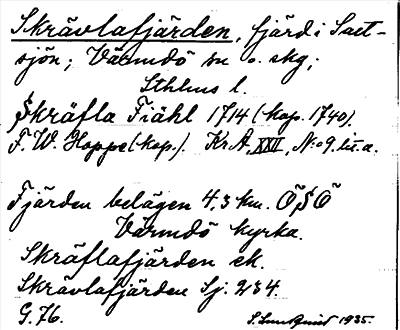 Skrävlafjärden, fjärd i Salt-
sjön; Värmdö sn o. skg;
Sthlms l.
Skräfla Fiähl 1714 (kop. 1740).
F. W. Hoppe (kop.). Kr.A, XXII, N:o 9. lit. a.
Fjärden belägen 4,3 km. ÖSÖ
Värmdö kyrka.
Skräflafjärden ek.
Skrävlafjärden Sj. 234.
G. 76. S. Lundquist 1935.